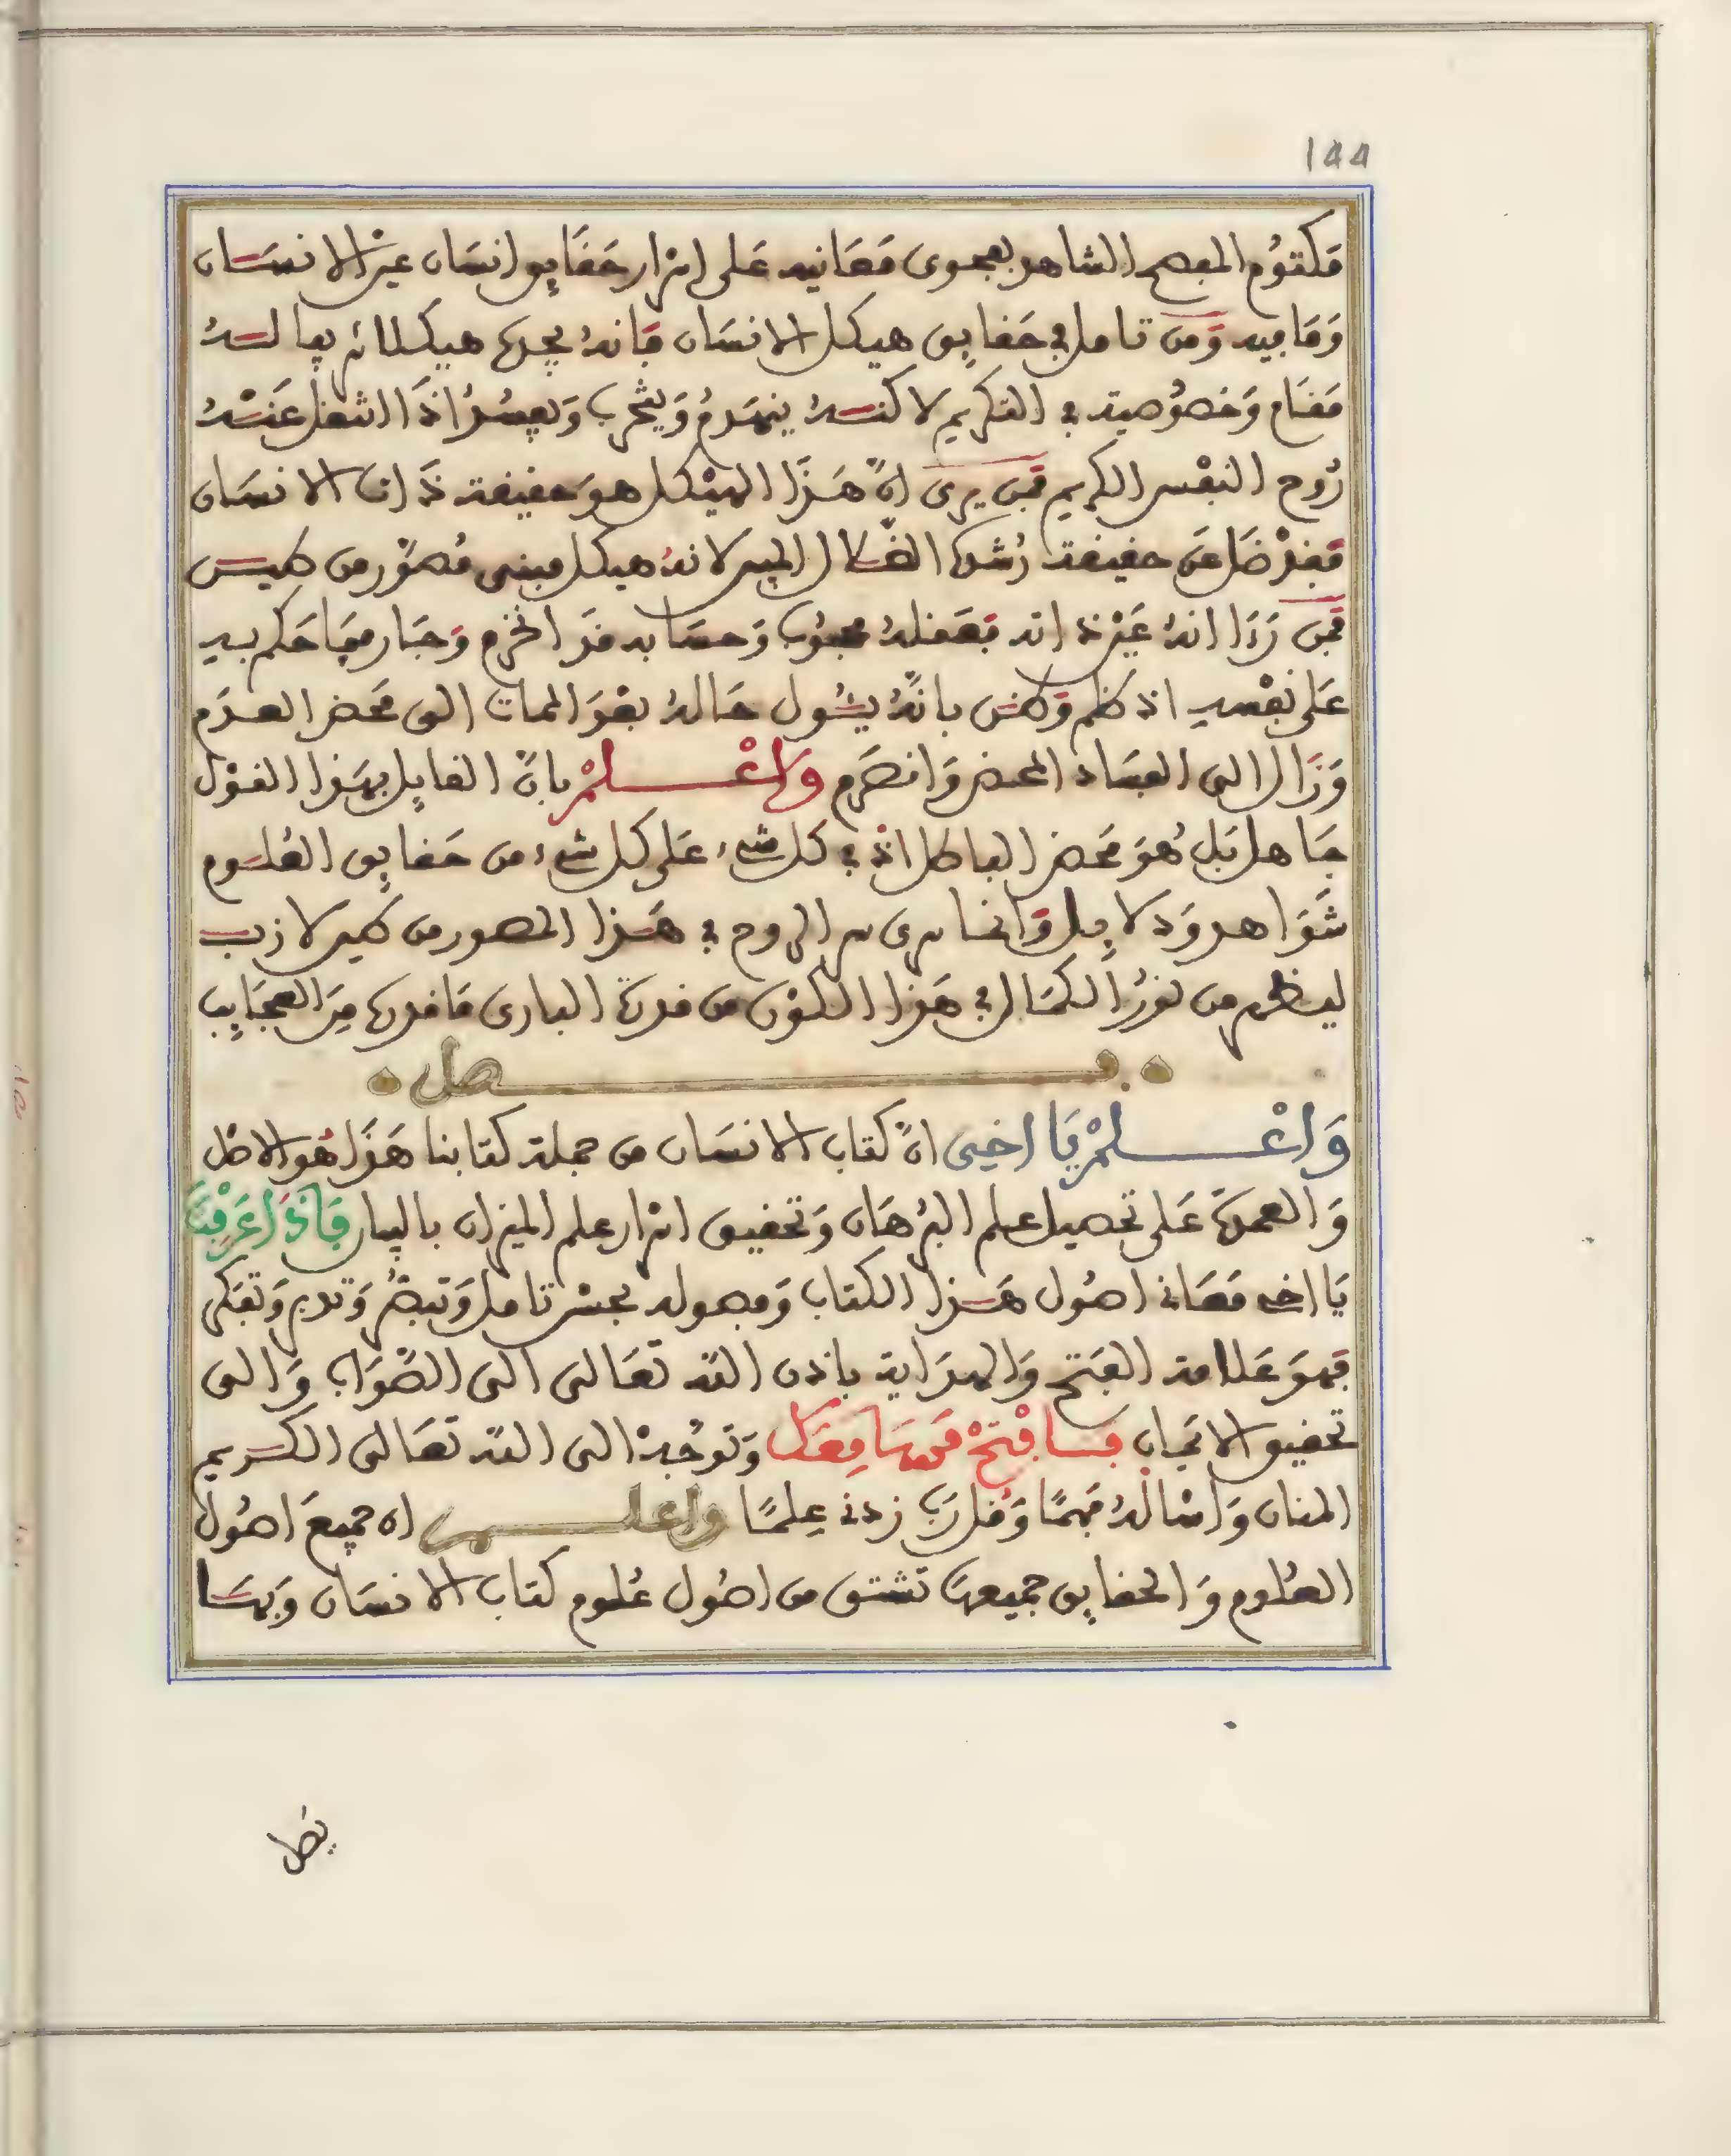 144
مَكتوُم المفصح الشاهد بفحوى مَعَانيه عَلى اسْرار حَقَايق انسَان عين الانسَان
وَمَا فيه وَمن تامل في حَقايق هيكل الانسَان فانهُ يجدها هيكلا لم يفا لـهُ
مَقام وَخصوُصية في التكريم لاكنـهُ ينهَدمُ وَيخرب وَيفسُدُ اذَا انتقل عَنـهُ
رُوح النفْس الكريم فمن يرى انّ هَـذَا الهيْكل هوَ حقيقة ذَات الانسَان
فقدْ ضَل عَن حقيقة رُشدها الضـلال المبين لانهُ هيكل مبنى مُصوّر من طيـن
فمن رَءَا انهُ غَيْر ذاته فعَقلهُ محجوُب وَحسَابه قد انخرم وَجَار فيمَا حَكم بـه
عَلى نفْسهِ اذ ظلم وَظن بانهُ يئُول حَالهُ بعْدَ الممات الى مَحض العـدَم
وَزَال الى الفسَاد المحض وَانصَرم وَاعْـلـمْ بانّ القايل بهَذا القوْل
جَاهل بَل هُوَ مَحض الباطل اذْ في كل شىء عَلى كل شىء من حَقايق العُلـوم
شَوَاهد وَدلايل وَانما سرى سر الروح في هَـذا المصور من طين لازب
ليظهر من نورُ الكمَال في هَذا اللوْن من قدرة البارى مَا فدرها مِنَ العجَايب
فـصل
وَاعْـلـمْ يَا اخِى انّ كتاب الانسَان من جملة كتابنا هَذَا هُو الاصْل
وَالعمدة عَلى تحصيل علم البرْهَان وَتحقيق اسْرار علم الميزان بالبيان فَاذَا عَرَفْتَ
يَا اخى مَعَانى اصُول هَـذا الكتاب وَفصوله بحسْن تامل وَتبصُر وَتدبر وَتفكر
فهوَ عَلامة الفتح وَالهدَاية باذن الله تعَالى الى الصّوَاب وَالى
تحقيق الايجاب فـافْتحْ مَسَامِعَك وَتوجُّهْ الى الله تعَالى الكـريم
المنان وَاسْالهُ فهمًا وَقل رَبّ زدنى عِلمًا وَاعلـم ان جميعَ اصُول
العُلوم وَالحقايق جميعهَا تشتق من اصُول عُلوم كتاب الانسَان وَبهـا
يصل